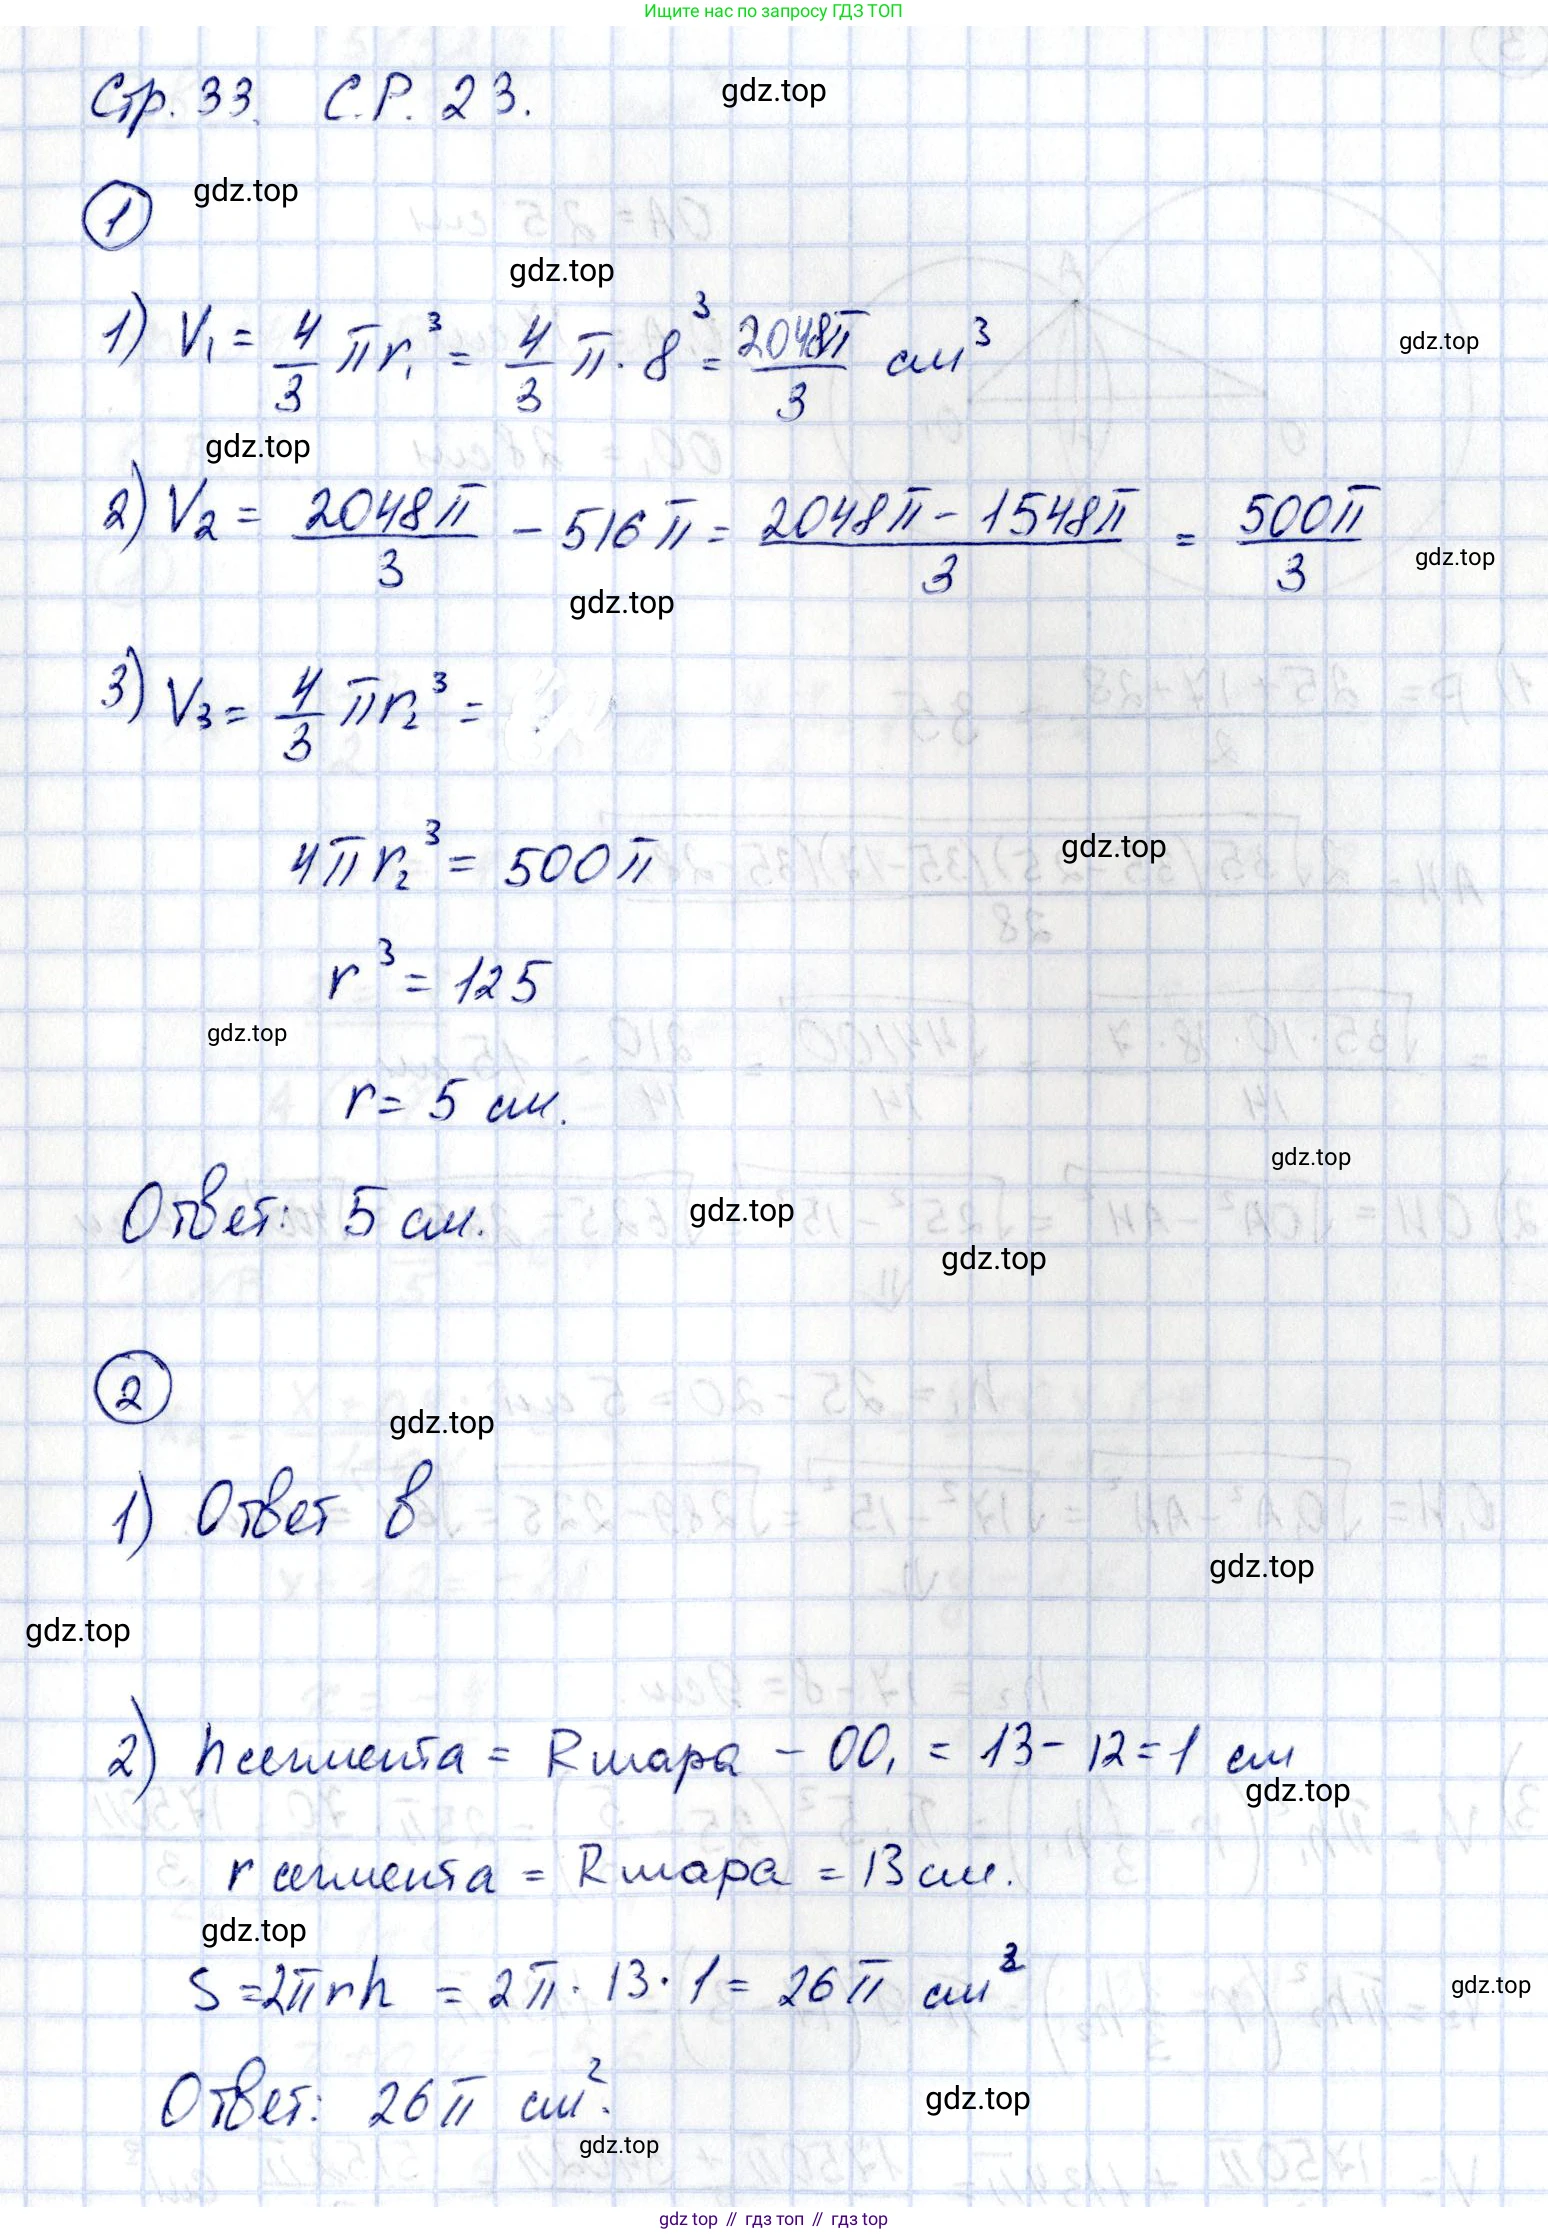 Ищите нас по запросу ГДЗ ТОП
Стр. 33. С.Р. 23.
gdz.top
1
gdz.top
gdz.top
1) V₁ = 4/3 πr₁³ = 4/3 π · 8³ = 2048π/3 см³
gdz.top
gdz.top
2) V₂ = 2048π/3 - 516π = (2048π - 1548π)/3 = 500π/3
gdz.top
gdz.top
3) V₃ = 4/3 πr₂³ =
4πr₂³ = 500π
gdz.top
r³ = 125
gdz.top
r = 5 см.
gdz.top
Ответ: 5 см.
gdz.top
gdz.top
2
gdz.top
1) Ответ в
gdz.top
gdz.top
2) h сегмента = R шара - OO₁ = 13 - 12 = 1 см
gdz.top
r сегмента = R шара = 13 см.
gdz.top
S = 2πrh = 2π · 13 · 1 = 26π см²
gdz.top
Ответ: 26π см².
gdz.top
gdz.top
gdz top // гдз топ // гдз top